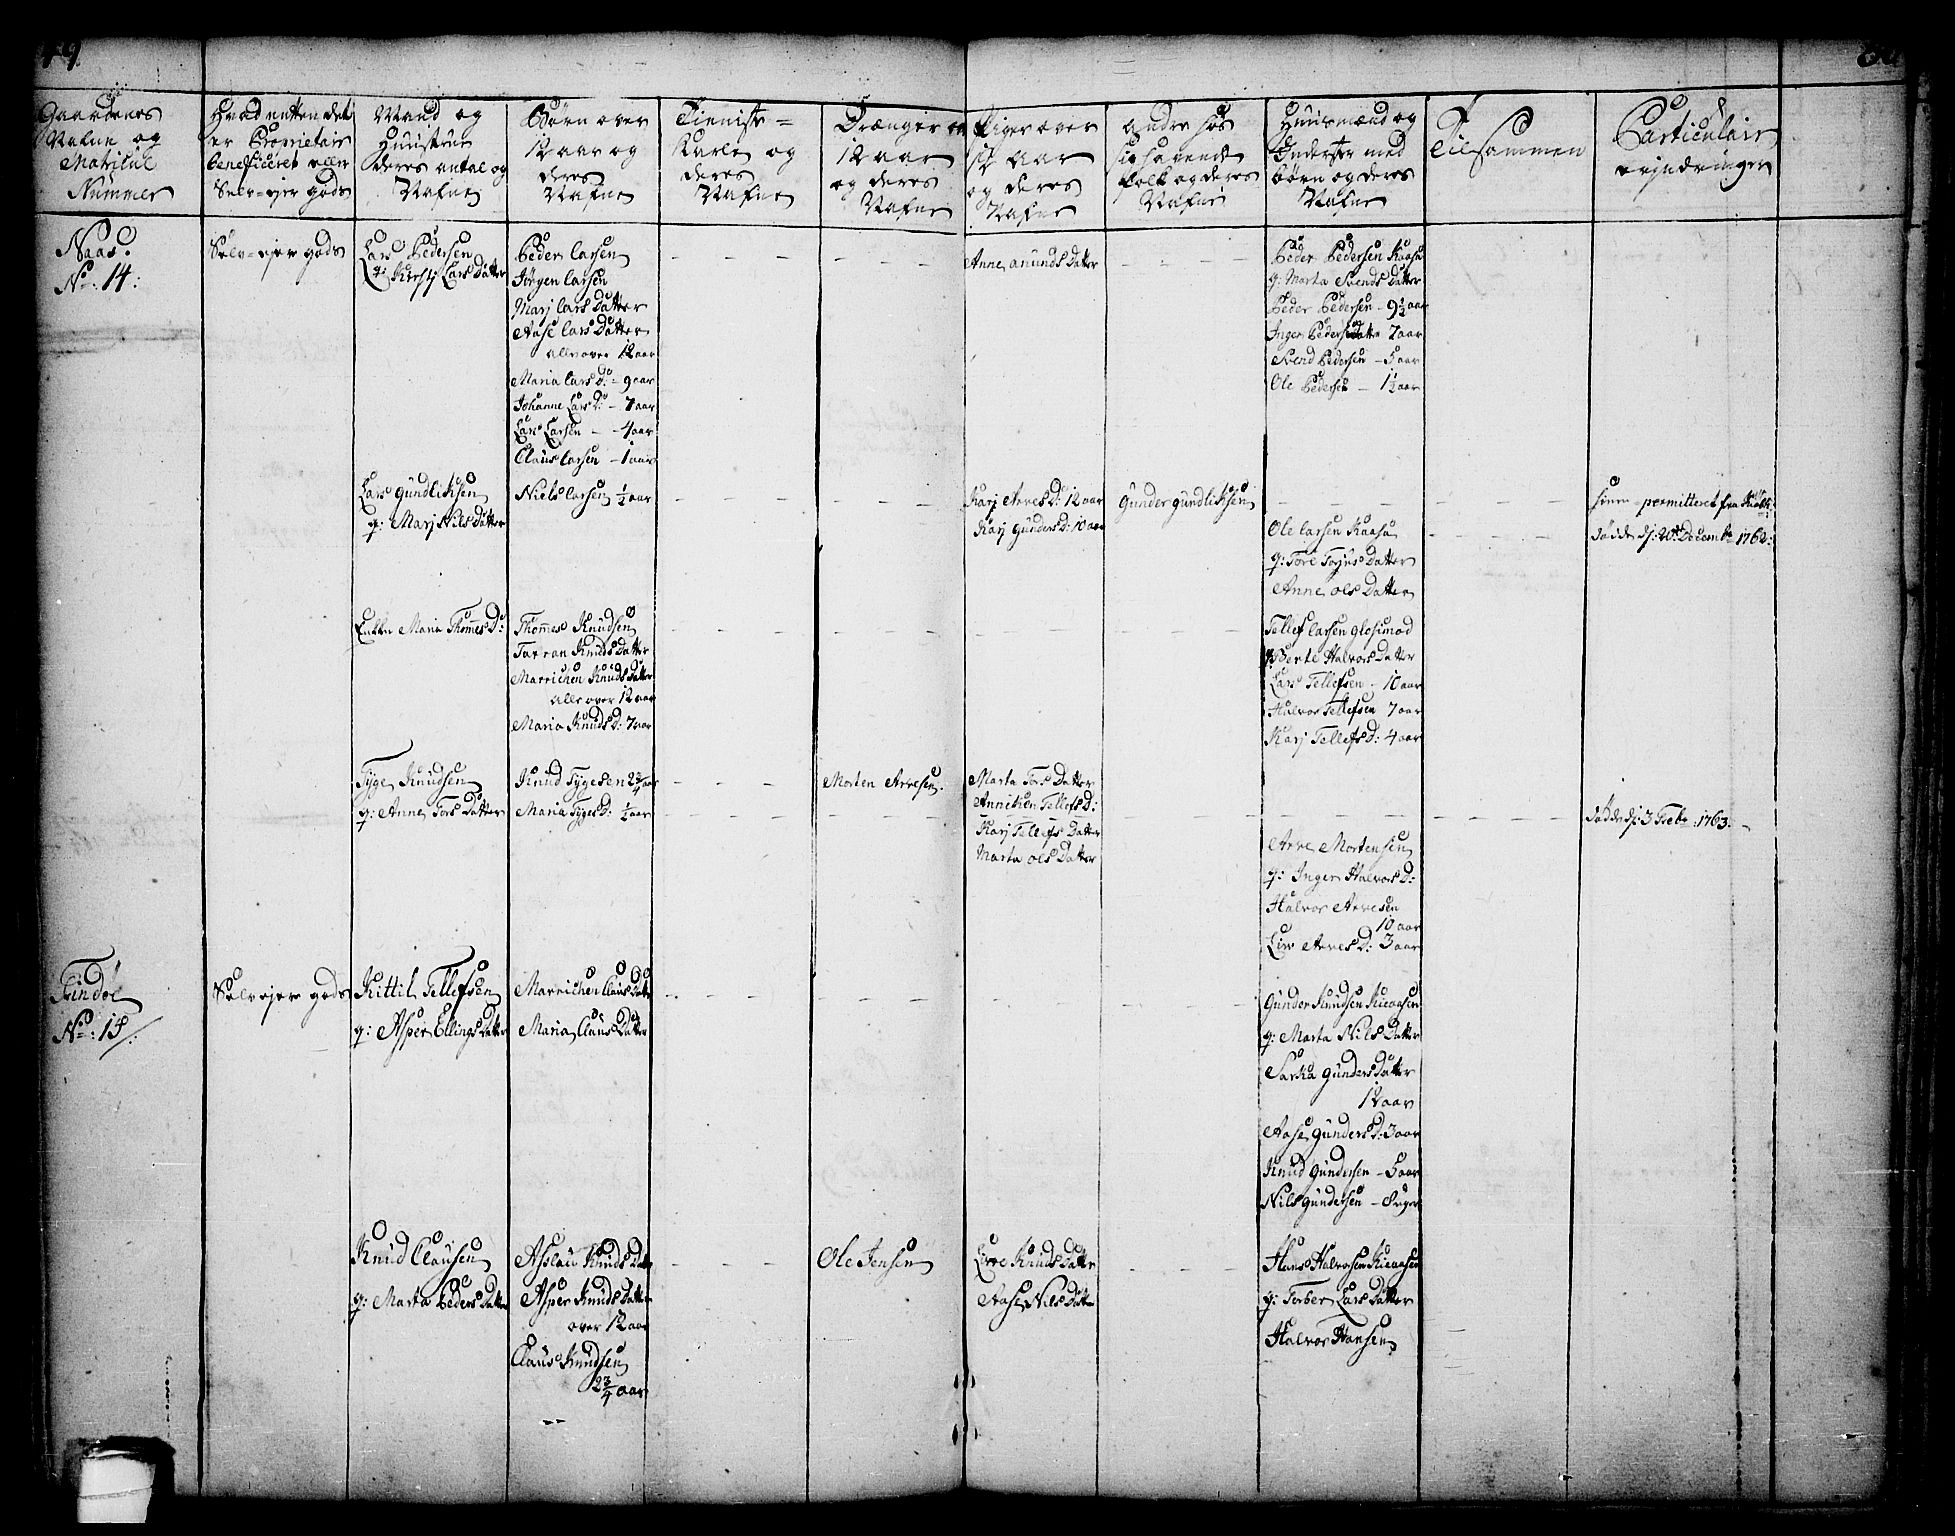 49
80
Gaardenes
Nafne og
Matricul
Nummer
Hvad enten det
er Proprietair
beneficeret eller
Selv-ejer gods
Mand og
Huustrue
deres antal og
Nafne
Børn over
12 aar og
deres
Nafne
Tieniste=
Karle og
deres
Nafne
Drænger ov
12 aar
og deres
Nafne
Piger over
12 aar
og deres
Nafne
andre hos
sig havende
folk og deres
Nafne
Huusmænd og
Inderster med
børn og deres
Nafne
Tilsammen
Particulair
erindringer
Naas
No 14:
Selv-ejer gods
Lars Pedersen
q: Kirsti Lars Datter
Peder Larsen
Jörgen Larsen
Marj Lars Datter
Aase Lars Datter
alle over 12 aar
Maria Lars D: - 9 aar
Johanne Lars D: - 7 aar
Lars Larsen - 4 aar
Claus Larsen - 1 aar
Anne Amunds Datter
Peder Pedersen Kaasa
q: Marta Svends Datter
Peder Pedersen - 9½ aar
Inger Peders Datter 7 aar
Svend Pedersen - 5 aar
Ole Pedersen - 1½ aar
Lars Gundliksen
q: Marj Nils Datter
Niels Larsen ½ aar
Karj Arves D: 12 aar
Karj Gunders D: 10 aar
Gunder Gundliksen
Ole Larsen Kaasa
q: Tore Datter
Anne Ols Datter
permitteret fra
döde d: 20de Decembr 1762:
Enken Maria Thomes D:
Thomes Knudsen
Tarran Knuds Datter
Marrichen Knuds Datter
alle over 12 aar
Maria Knuds D: 7 aar
Tellef Larsen Glosimod
q: Berte Halvors Datter
Lars Tellefsen - 10 aar
Halvor Tellefsen 7 aar
Karj Tellefs D: 4 aar
Tyge Knudsen
q: Anne Tors Datter
Knud Tygesen 2¾ aar
Maria Tyges D: ½ aar
Morten Arvesen.
Marta Tors Datter
Annichen Tellefs D:
Karj Tellefs Datter
Marta Ols Datter
Arve Mortensen
q: Inger Halvors D:
Halvor Arvesen
10 aar
Liv Arves D: 3 aar
döde d: 3 Febr: 1763.
Findöl
No: 15
Selvejer gods
Kittil Tellefsen
q: Asper Ellings Datter
Marrichen Claus Datter
Maria Claus Datter
Gunder Knudsen Kieaasen
q: Marta Nils Datter
Sarka Gunders Datter
12 aar
Aase Gunders D: 3 aar
Knud Gundersen - 5 aar
Nils Gundersen - 8 uger
Knud Clausen
q: Marta Peders Datter
Aslau Knuds Datter
Asper Knuds Datter
over 12 aar
Claus Knudsen
2¾ aar
Ole Jensen
Live Knuds Datter
Aase Nils Datter
Hans Halvorsen Kieaasen
q: Torber Lars Datter
Halvor Hansen